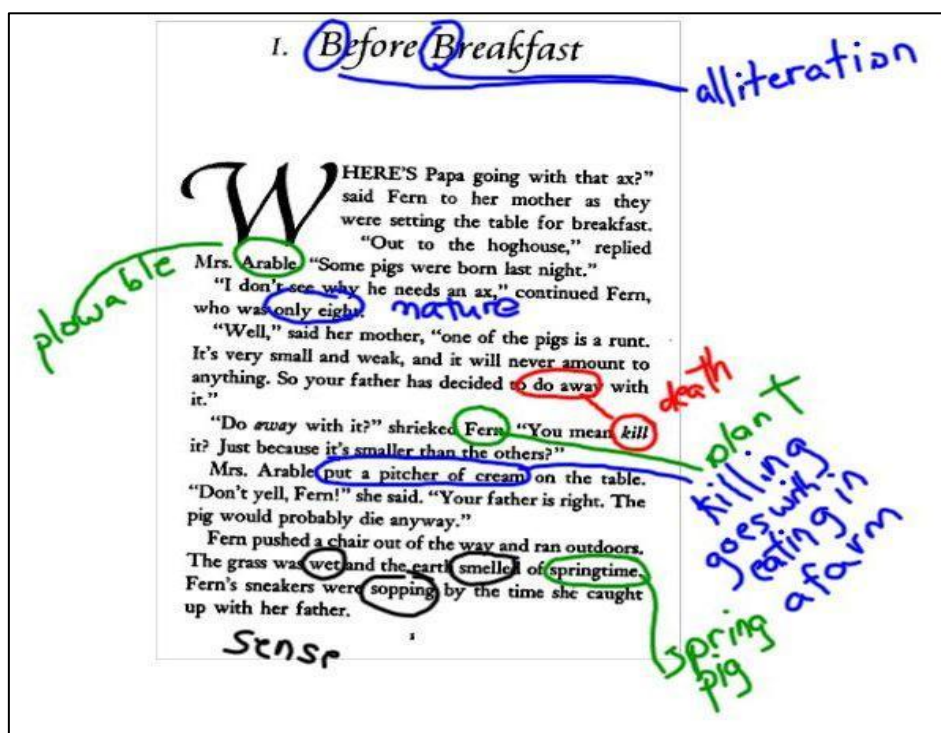 I. Before Breakfast
alliteration
WHERE'S Papa going with that ax?"
said Fern to her mother as they
were setting the table for breakfast.
"Out to the hoghouse," replied
Mrs. Arable. "Some pigs were born last night."
plowable
"I don't see why he needs an ax," continued Fern,
who was only eight.
nature
"Well," said her mother, "one of the pigs is a runt.
It's very small and weak, and it will never amount to
anything. So your father has decided to do away with
it."
death
"Do away with it?" shrieked Fern. "You mean kill
it? Just because it's smaller than the others?"
plant
Mrs. Arable put a pitcher of cream on the table.
"Don't yell, Fern!" she said. "Your father is right. The
pig would probably die anyway."
killing
goes with
eating in
a farm
Fern pushed a chair out of the way and ran outdoors.
The grass was wet and the earth smelled of springtime.
Fern's sneakers were sopping by the time she caught
up with her father.
spring
pig
1
sense